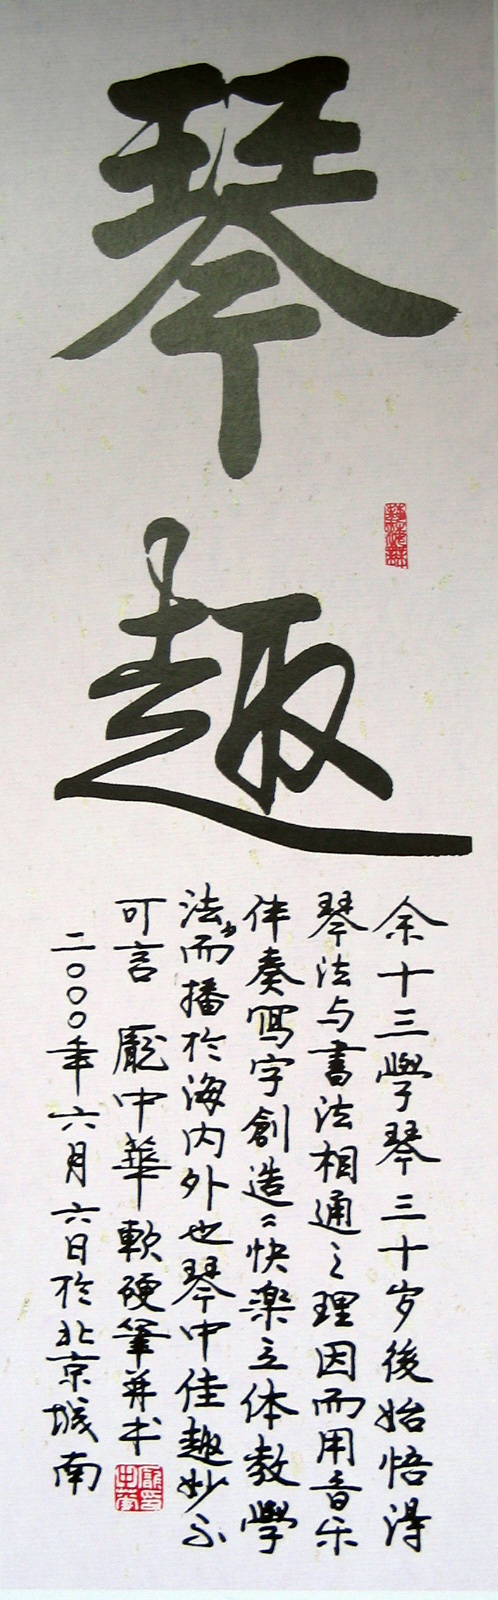 琴
趣
余十三學琴三十岁後始悟得
琴法与書法相通之理因而用音乐
伴奏寫字創造“快楽立体教學
法”而播於海内外也琴中佳趣妙不
可言 龐中華軟硬筆并书
二〇〇〇年六月六日於北京城南